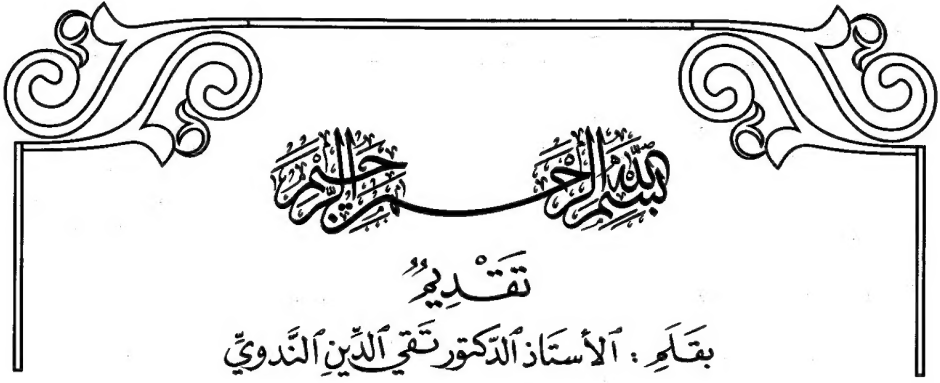 بسم الله الرحمن الرحيم
تَقْدِيمٌ
بِقَلَمِ : ٱلأُسْتَاذ ٱلدّكتور تَقي ٱلدِّينِ ٱلنَّدويِّ